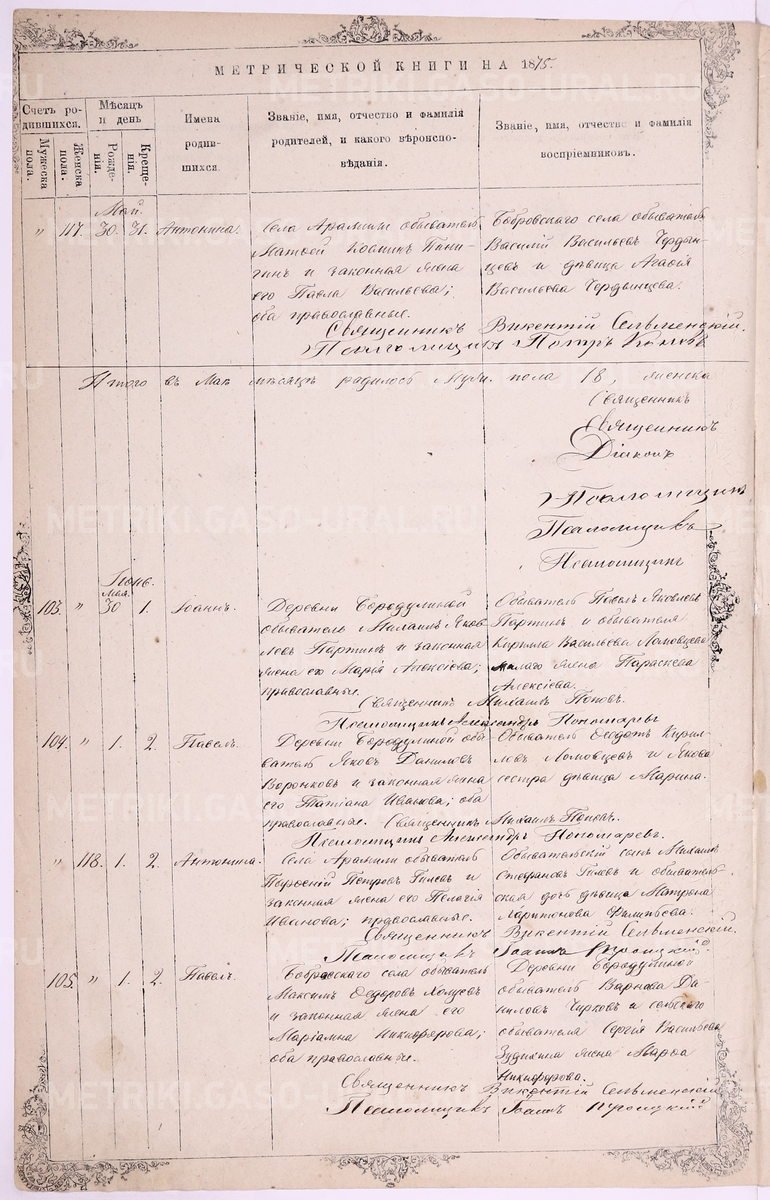 МЕТРИЧЕСКОЙ КНИГИ НА 1875.
Счетъ ро-
дившихся.
Мужеска
пола.
Женска
пола.
Мѣсяцъ
и день
Рожде-
нія.
Креще-
нія.
Имена
родив-
шихся.
Званіе, имя, отчество и фамилія
родителей, и какого вѣроиспо-
вѣданія.
Званіе, имя, отчество и фамилія
воспріемниковъ.
Май.
" 117. 30. 31. Антонина.
Села Арамили обыватель
Матѳей Косминъ
и законная жена
его Павла Васильева;
оба православные.
Бобровскаго села обыватель
Василій Васильевъ Чердын-
цевъ и дѣвица Агафія
Васильева Чердынцева.
Священникъ Викентій Сельменскій.
Псаломщикъ Петръ
Итого въ Маѣ мѣсяцѣ родилось муж. пола 18, женска
Священникъ
Священникъ
Діаконъ
Псаломщикъ
Псаломщикъ
Псаломщикъ
Іюнь.
Мая.
103. " 30 1. Іоаннъ.
Деревни Бородулиной
обыватель Михаилъ Яков-
левъ Партинъ и законная
жена его Марія Алексіева;
православные.
Обыватель Павелъ Яковлевъ
Партинъ и обывателя
Кирилла Васильева Ломовцева
жена Параскева
Алексіева.
Священникъ Михаилъ Поповъ.
Псаломщикъ Александръ Пономаревъ
104. " 1. 2. Павелъ.
Деревни Бородулиной обы-
ватель Яковъ Даниловъ
Воронковъ и законная жена
его Татіана Иванова; оба
православные.
Обыватель Ѳеодотъ Кирил-
ловъ Ломовцевъ и Якова
сестра дѣвица Марина.
Священникъ Михаилъ Поповъ.
Псаломщикъ Александръ Пономаревъ.
" 118. 1. 2. Антонина.
Села Арамили обыватель
Петровъ Гилевъ и
законная жена его Пелагія
Иванова; православные.
Обывательскій сынъ Михаилъ
Стефановъ Гилевъ и обыватель-
ская дочь дѣвица Матрона
Харитонова Филипьева.
Священникъ Викентій Сельменскій.
Псаломщикъ Іоаннъ Троицкій.
105. " 1. 2. Павелъ.
Бобровскаго села обыватель
Максимъ Ѳедоровъ
и законная жена его
Маріамна Никифорова;
оба православные.
Деревни Бородулиной
обыватель Варнава Да-
ниловъ Чирковъ и сельскаго
обывателя Сергія Васильева
жена Марѳа
Никифорова.
Священникъ Викентій Сельменскій
Псаломщикъ Іоаннъ Троицкій